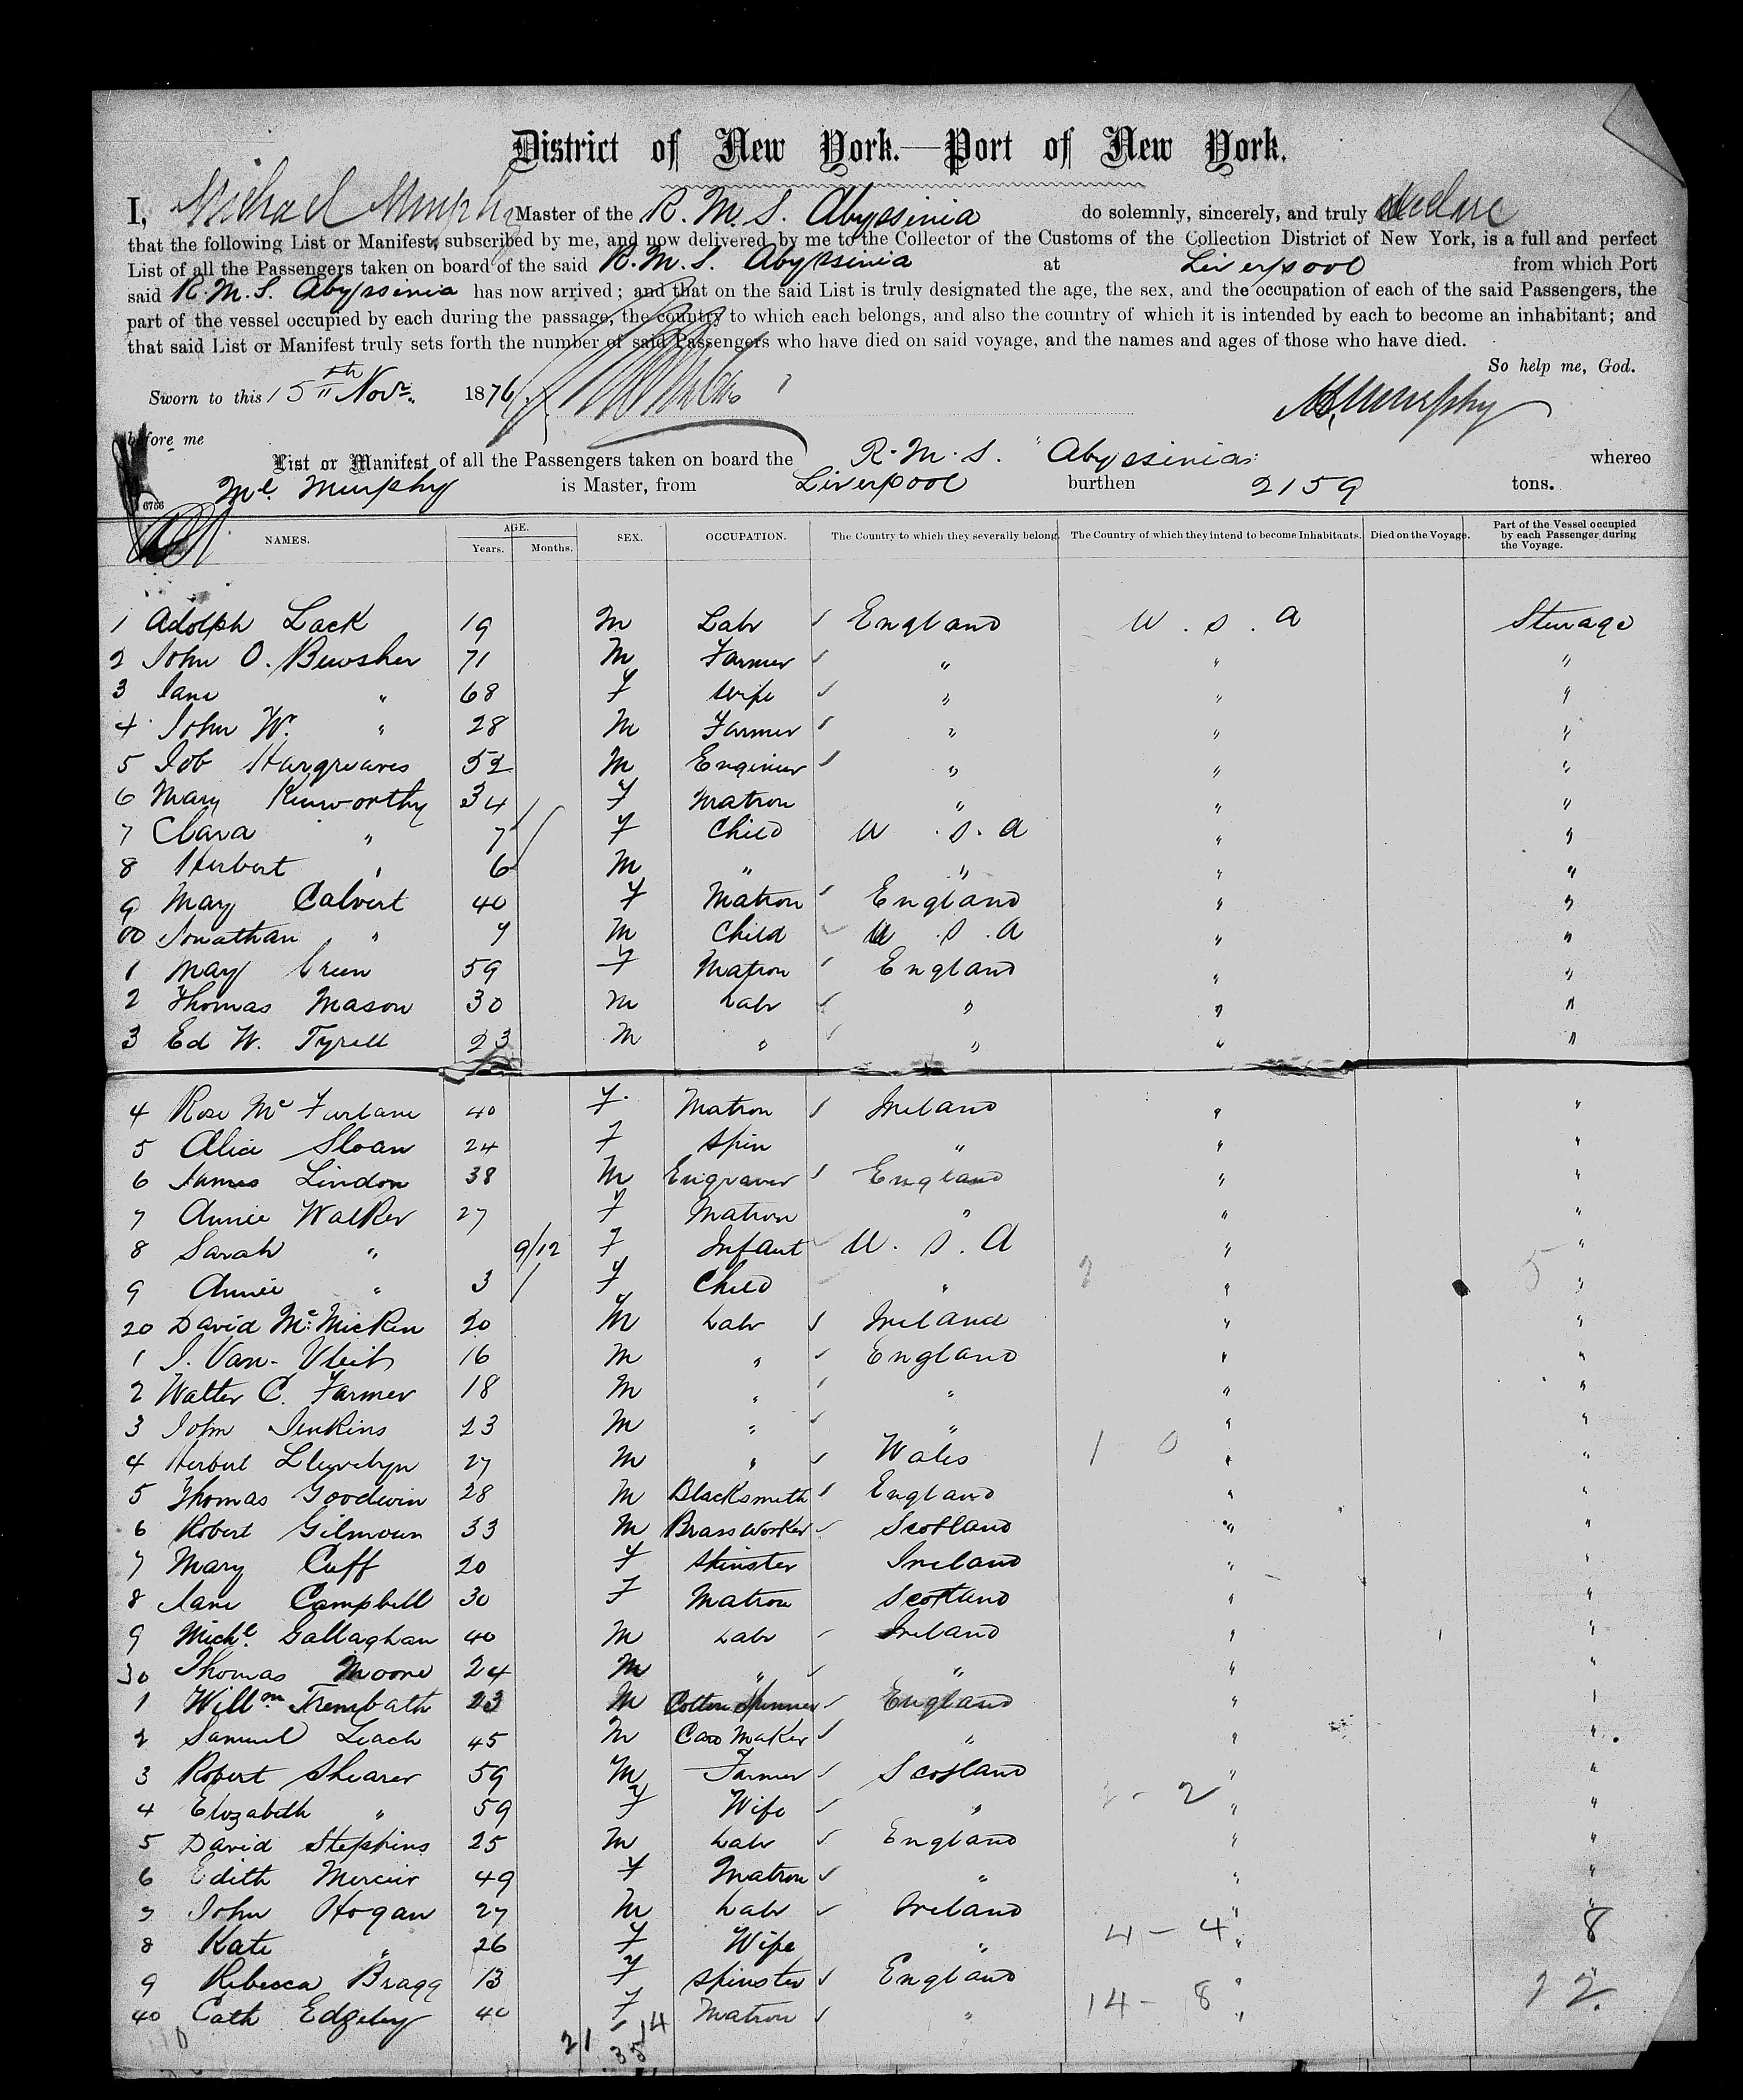 District of New York.—Port of New York.
I, Michael Murphy Master of the R.M.S. Abyssinia do solemnly, sincerely, and truly declare
that the following List or Manifest, subscribed by me, and now delivered by me to the Collector of the Customs of the Collection District of New York, is a full and perfect
List of all the Passengers taken on board of the said R.M.S. Abyssinia at Liverpool from which Port
said R.M.S. Abyssinia has now arrived; and that on the said List is truly designated the age, the sex, and the occupation of each of the said Passengers, the
part of the vessel occupied by each during the passage, the country to which each belongs, and also the country of which it is intended by each to become an inhabitant; and
that said List or Manifest truly sets forth the number of said Passengers who have died on said voyage, and the names and ages of those who have died.
So help me, God.
Sworn to this 15th Novr. 1876 M. Murphy
before me
List or Manifest of all the Passengers taken on board the R.M.S. "Abyssinia" whereo
Ml. Murphy is Master, from Liverpool burthen 2159 tons.
6756
NAMES. AGE. Years. Months. SEX. OCCUPATION. The Country to which they severally belong. The Country of which they intend to become Inhabitants. Died on the Voyage. Part of the Vessel occupied by each Passenger during the Voyage.
1 Adolph Lack 19 M Labr England U.S.A Steerage
2 John O. Bewsher 71 M Farmer " " "
3 Jane " 68 F Wife " " "
4 John W. " 28 M Farmer " " "
5 Job Hargreaves 52 M Engineer " " "
6 Mary Kenworthy 34 F Matron " " "
7 Clara " 7 F Child U.S.A " "
8 Herbert " 6 M " " " "
9 Mary Calvert 40 F Matron England " "
10 Jonathan " 9 M Child U.S.A " "
1 Mary Green 59 F Matron England " "
2 Thomas Mason 30 M Labr " " "
3 Ed W. Tyrell 23 M " " " "
4 Rose Mc Farlane 40 F. Matron Ireland " "
5 Alice Sloan 24 F Spin " " "
6 James Lindon 38 M Engraver England " "
7 Annie Walker 27 F Matron " " "
8 Sarah " 9/12 F Infant U.S.A " "
9 Annie " 3 F Child " " "
20 David Mc Micken 20 M Labr Ireland " "
1 J. Van-Vleit 16 M " England " "
2 Walter C. Farmer 18 M " " " "
3 John Jenkins 23 M " " " "
4 Herbert Llewelyn 27 M " Wales " "
5 Thomas Goodwin 28 M Blacksmith England " "
6 Robert Gilmour 33 M Brass Worker Scotland " "
7 Mary Cuff 20 F Spinster Ireland " "
8 Jane Campbell 30 F Matron Scotland " "
9 Michl. Gallaghan 40 M Labr Ireland " "
30 Thomas Moore 24 M " " " "
1 Willm Trembath 23 M Cotton Spinner England " "
2 Samuel Leach 45 M Card Maker " " "
3 Robert Shearer 59 M Farmer Scotland " "
4 Elizabeth " 59 F Wife " " "
5 David Stephins 25 M Labr England " "
6 Edith Mercier 49 F Matron " " "
7 John Hogan 27 M Labr Ireland " "
8 Kate " 26 F Wife " 4-4 " 8
9 Rebecca Bragg 13 F Spinster England " "
40 Cath Edgeley 40 F Matron " 14-8 "
21 14
35